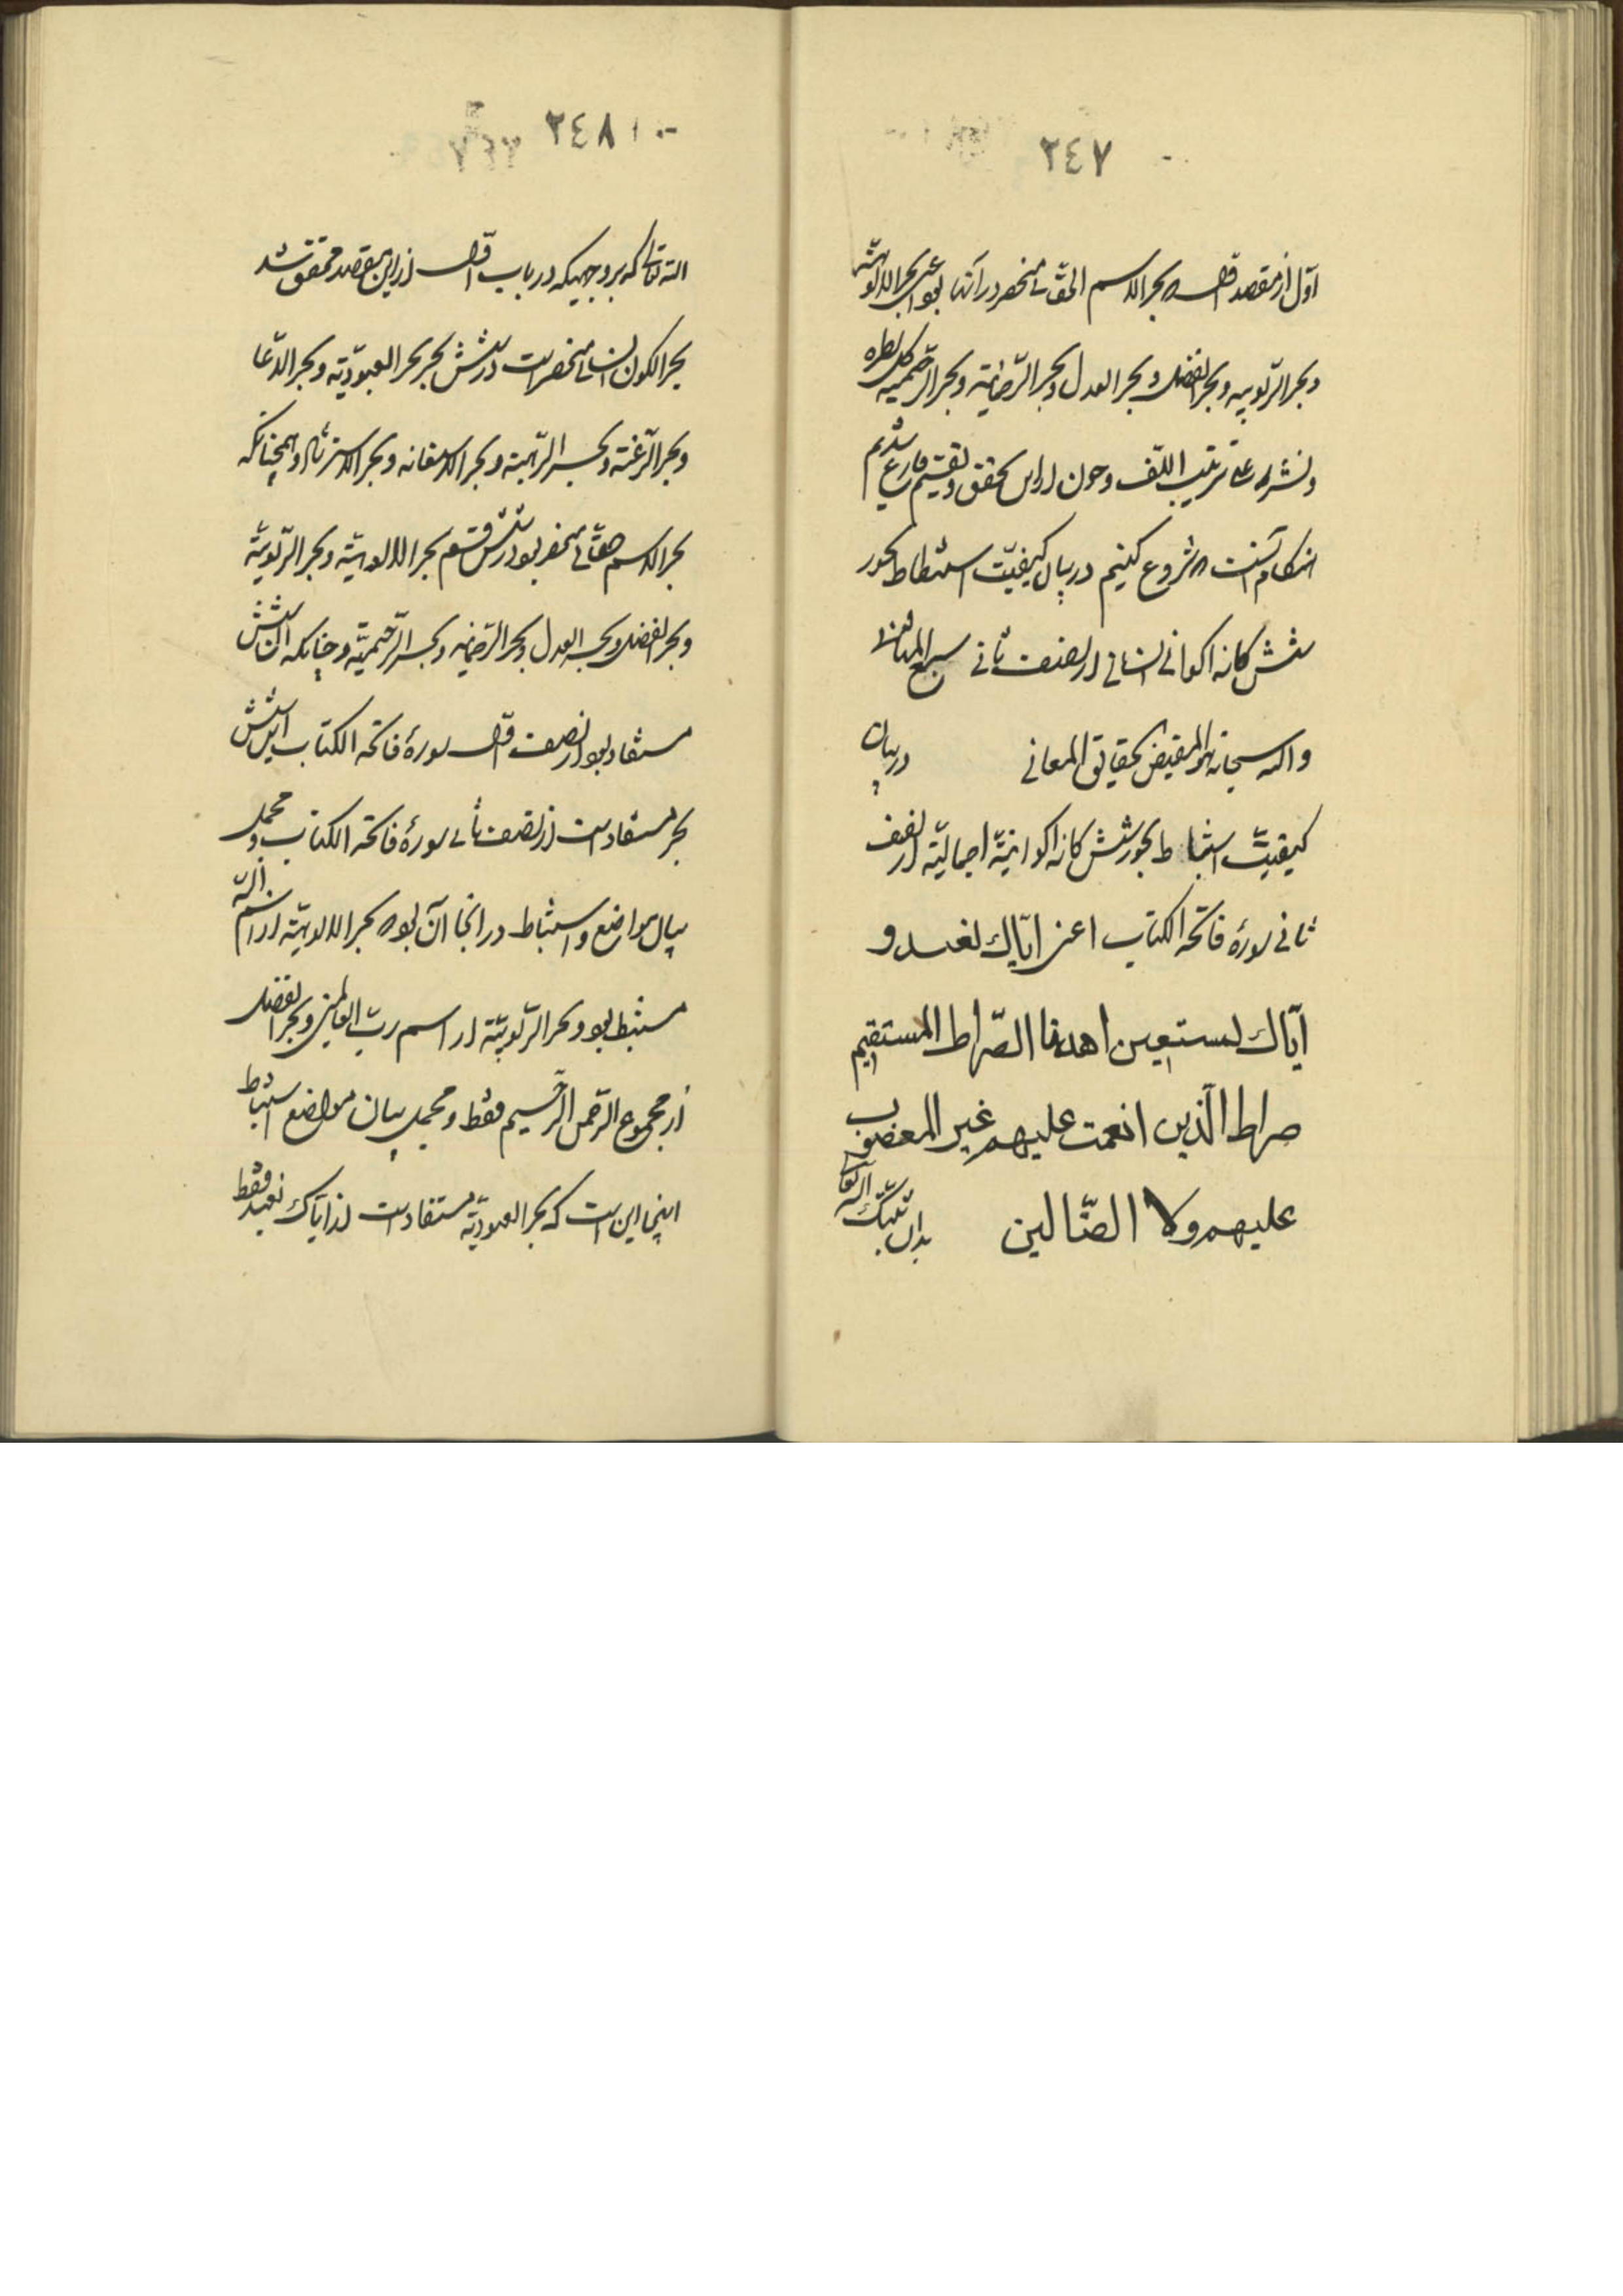 ٢٤٧
اول از مقصد اول بحر الاسم الحقانی منحصر در آنها بود اعنی بحر الالوهیة
و بحر الربوبیه و بحر الفضل و بحر العدل و بحر الرحمانیة و بحر الرحیمیه
و نشر علی ترتیب اللف و چون از این تحقیق و تقسیم فارغ شدیم
هنگام آنست که شروع کنیم در بیان کیفیت استنباط بحور
شش کانه اکوانی انسانی از نصف ثانی سبع المثانی
والله سبحانه هو المفیض لحقایق المعانی در بیان
کیفیت استنباط بحور شش کانه اکوانیة اجمالیة از نصف
ثانی سورهٔ فاتحة الکتاب اعنی ایاك نعبد و
ایاك نستعین اهدنا الصراط المستقیم
صراط الذین انعمت علیهم غیر المغضوب
علیهم ولا الضالین بدان
٢٤٨
الله تعالی که بر وجهیکه در باب اول از این مقصد محقق شد
بحر الکون انسانی منحصر است در شش بحر بحر العبودیة و بحر الدعا
و بحر الرغبة و بحر الرهبة و بحر الاستعانه و بحر الاسترشاد و همچنانکه
بحر الاسم حقانی منحصر بود در شش قسم بحر الالوهیة و بحر الربوبیة
و بحر الفضل و بحر العدل و بحر الرحمانیه و بحر الرحیمیة و چنانکه آن شش
مستفاد بود از نصف اول سورهٔ فاتحة الکتاب این شش
بحر مستفاد است از نصف ثانی سورهٔ فاتحة الکتاب و مجمل
بیان مواضع و استنباط در انجا آن بود که بحر الالوهیة از اسم الله
مستنبط بود و بحر الربوبیة از اسم رب العالمین و بحر الفضل
از مجموع الرحمن الرحیم فقط و مجمل بیان مواضع استنباط
اینجا این است که بحر العبودیة مستفاد است از ایاك نعبد فقط